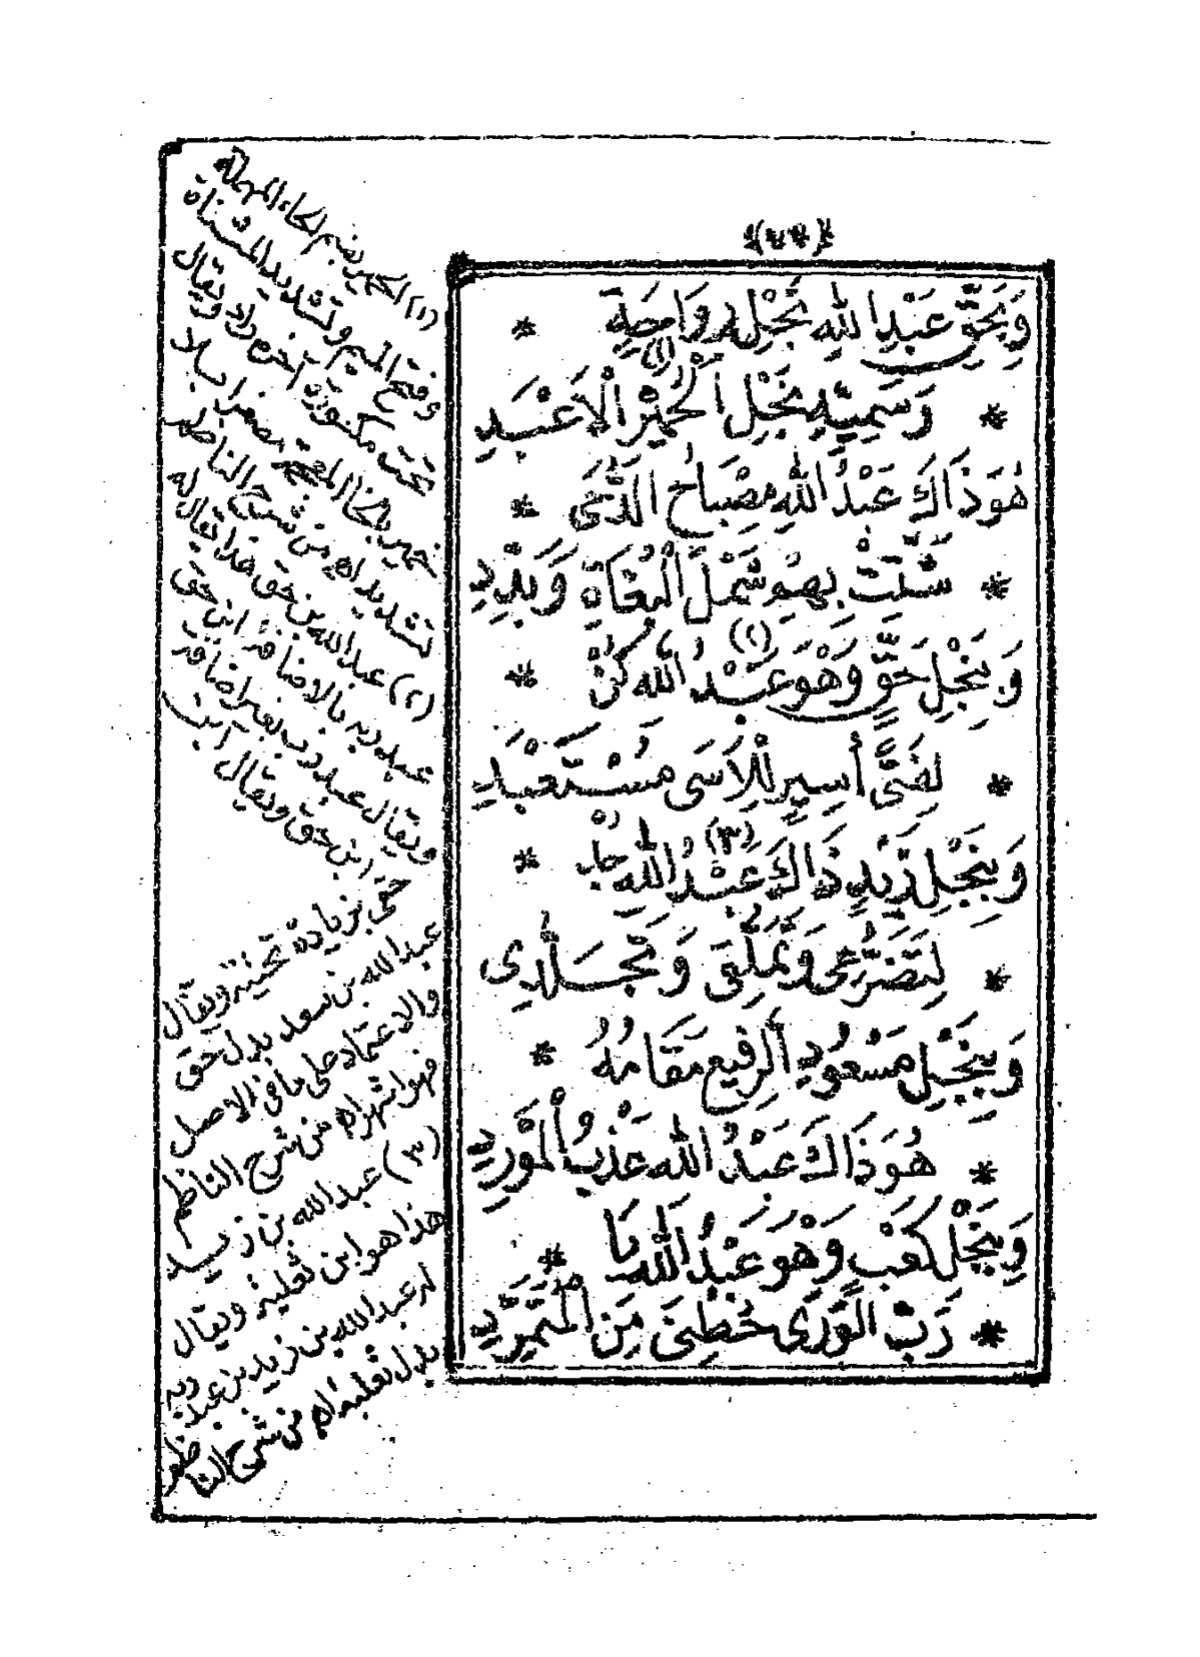 وَبِحَقِّ عَبْدِ اللهِ نَجْلِ رَوَاحَةٍ *
* وَسَمِيِّهِ نَجْلِ الْحُمَيِّرْ (١) الْأَعْبَدِ
هُوَ ذَاكَ عَبْدُ اللهِ مِصْبَاحُ الدُّجَى *
* شَتِّتْ بِهِ شَمْلَ الْبُغَاةِ وَبَدِّدِ
وَبِنَجْلِ حَقٍّ وَهْوَ عَبْدُ (٢) اللهِ كُنْ *
* لِفَتًى أَسِيرٍ لِلْأَسَى مُسْتَعْبَدِ
وَبِنَجْلِ زَيْدٍ ذَاكَ عَبْدُ (٣) اللهِ جُدْ *
* لِتَضَرُّعِي وَتَمَلُّقِي وَتَجَلُّدِي
وَبِنَجْلِ مَسْعُودِ الرَّفِيعِ مَقَامُهُ *
* هُوَ ذَاكَ عَبْدُ اللهِ عَذْبُ الْمَوْرِدِ
وَبِنَجْلِ كَعْبٍ وَهْوَ عَبْدُ اللهِ يَا *
* رَبَّ الْوَرَى خُطْنِي مِنَ الْمُتَمَرِّدِ
(١) الحمير بضم الحاء المهملة
وفتح الميم وتشديد المثناة
تحت مكسورة آخره راء ويقال
خمير بالخاء المعجمة مصغرا بلا
تشديد اه من شرح الناظم
(٢) عبد الله بن حق هذا يقال له
عبد ربه بالاضافة ابن حق
ويقال عبد رب بغير اضافة
ابن حق ويقال ابن
حقي بزيادة تحتية ويقال
عبد الله بن سعد بدل حق
والاعتماد على ما في الاصل
فهو اشهر اه من شرح الناظم
(٣) عبد الله بن زيد
هذا هو ابن ثعلبة ويقال
له عبد الله بن زيد بن عبد ربه
بدل ثعلبة اه من شرح الناظم